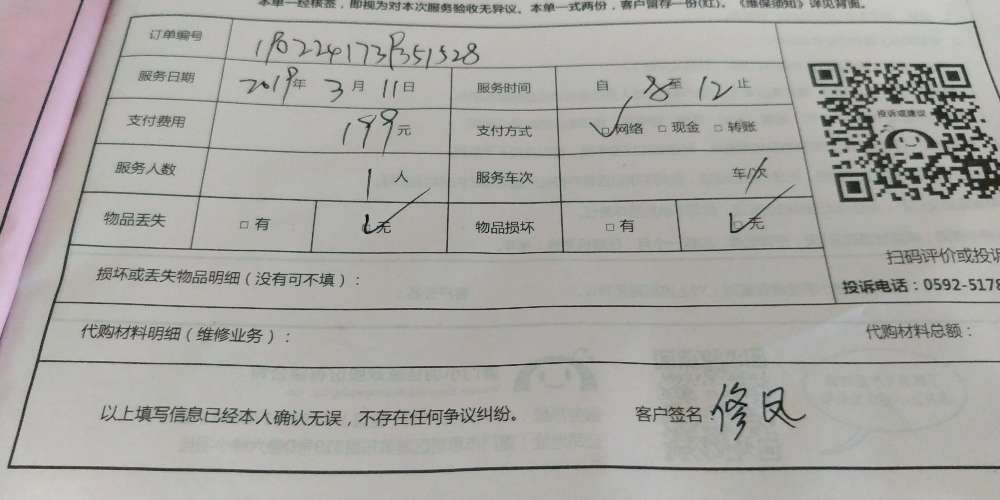 本单一经核签，即视为对本次服务验收无异议。本单一式两份，客户留存一份(红)。《维保须知》详见背面。
订单编号 1P0224173P351528
服务日期 2019年 3月 11日 服务时间 自 8 至 12 止
支付费用 199元 支付方式 网络 □现金 □转账
投诉或建议
服务人数 1人 服务车次 车/次
物品丢失 □有 无 物品损坏 □有 无
扫码评价或投诉
损坏或丢失物品明细（没有可不填）：
投诉电话：0592-5178
代购材料明细（维修业务）： 代购材料总额：
以上填写信息已经本人确认无误，不存在任何争议纠纷。 客户签名：修良